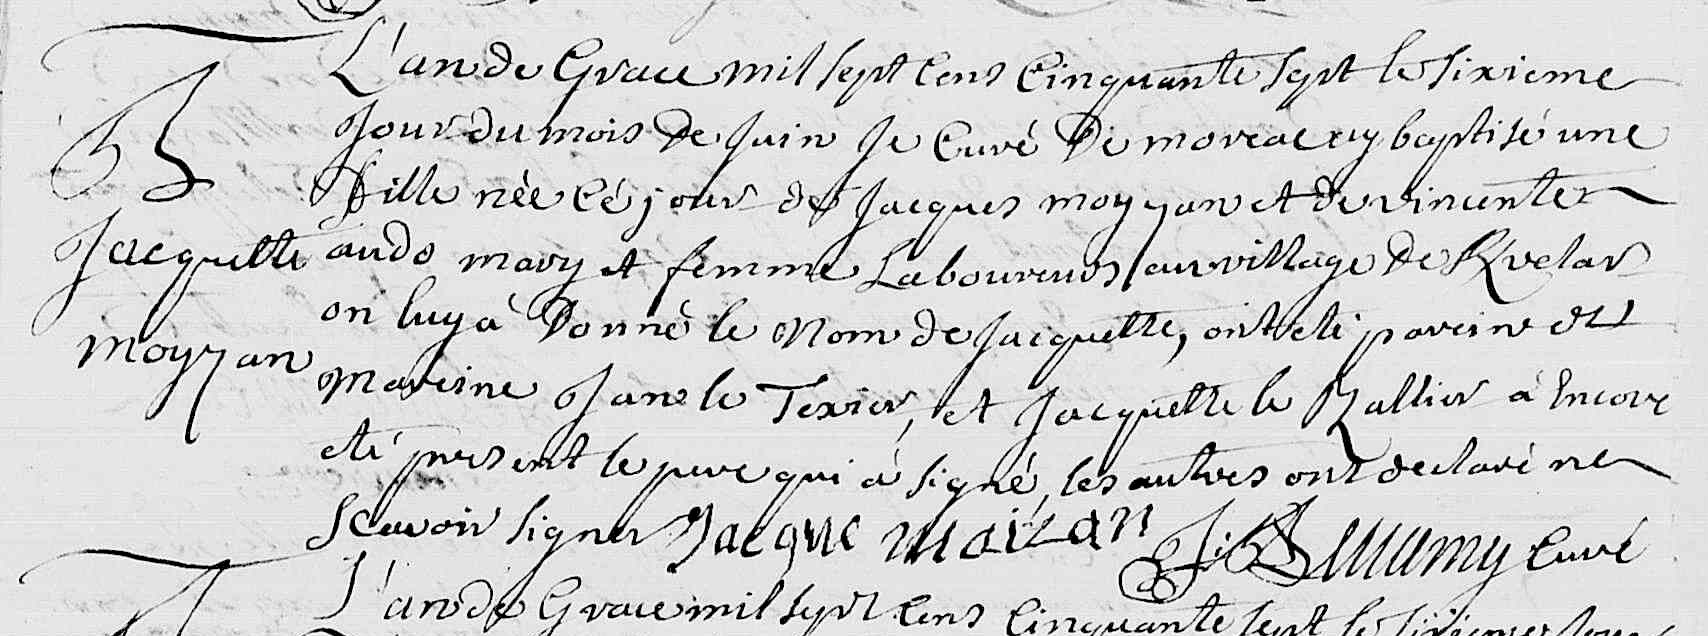 B
Jacquette
moyzan
L'an de Grace mil sept cens Cinquante sept le sixieme
Jour du mois de Juin Je Curé De moreac ay baptisé une
Fille née cé jour de Jacques moyzan et de vincente
audo mary et femme Laboureurs au village de Kvelar
on luy à Donné le Nom de Jacquette, ont eté parein et
mareine Jan le Texier, et Jacquette le Rallier à Encore
eté present le pere qui à signé, les autres ont declaré ne
Scavoir signer Jacque moizan Curé
L'an de Grace mil sept cens Cinquante sept le sixieme Jour